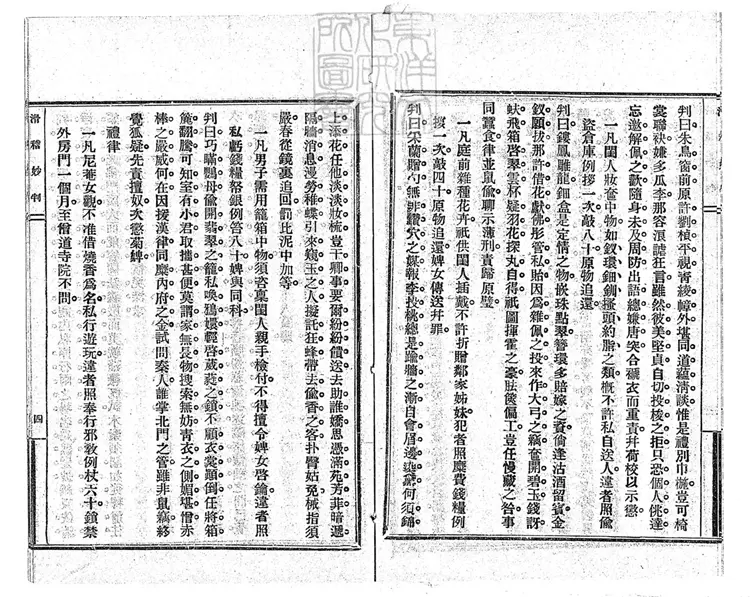 判曰朱鳥窗前原許劉楨平視靑綾幛外堪同道蘊淸談惟是禮別巾櫛豈可椅
裳聯袂嫌多瓜李那容浪謔狂言雖然彼美堅貞自切投梭之拒只恐個人佻達
忘邀解佩之歡隨身未及周防出語總嫌唐突合襯衣而重責幷荷校以示懲
一凡閨人妝奩中物如釵環鈿釧搔頭約脂之類概不許私自送人違者照偸
盜倉庫例拶一次敲八十原物追還
判曰鏤鳳雕龍鈿盒是定情之物嵌珠點翠簪環多賠嫁之資倘逢沽酒留賓金
釵願拔那許借花獻佛彤管私貽因爲雜佩之投來作大弓之竊奩開碧玉錢訝
蚨飛箱啓翠雲杯疑羽花探丸自得祇圖揮霍之豪胠篋偏工豈任慢藏之咎事
同蠶食律並鼠偸聊示薄刑責歸原璧
一凡庭前雜種花卉祇供閨人插戴不許折贈鄰家姊妹犯者照糜費錢糧例
拶一次敲四十原物追還婢女傳送幷罪
判曰采蘭贈勺無非鑽穴之媒報李投桃總是踰牆之漸自會眉邊染黛何須錦
上添花任他淡淡妝梳豈干卿事要爾紛紛饋送去助誰嬌思憑滿苑芳菲暗遞
隔牆消息漫勞稚蝶引來窺玉之人擬託狂蜂帶去偸香之客扑臀姑免械指須
嚴春從鏡裏追回罰比泥中加等
一凡男子需用籠箱中物須咨稟閨人親手檢付不得擅令婢女啓鑰違者照
私虧錢糧帑銀例笞八十婢與同科
判曰巧囀鸚母偸開翡翠之籠私喚鴉嬛輕啓葳蕤之鎖不顧衣裳顚倒任將箱
篋翻騰可知室有小君取攜甚便莫謂家無長物搜索無妨靑衣之側媚堪憎赤
棒之嚴威何在因援漢律同廝內府之金試問秦人誰掌北門之管雖非鼠竊終
覺狐疑先責擅奴次懲菊婢
禮律
一凡尼菴女觀不准借燒香爲名私行遊玩違者照奉行邪敎例杖六十鎖禁
外房門一個月至僧道寺院不問
滑稽妙判
四